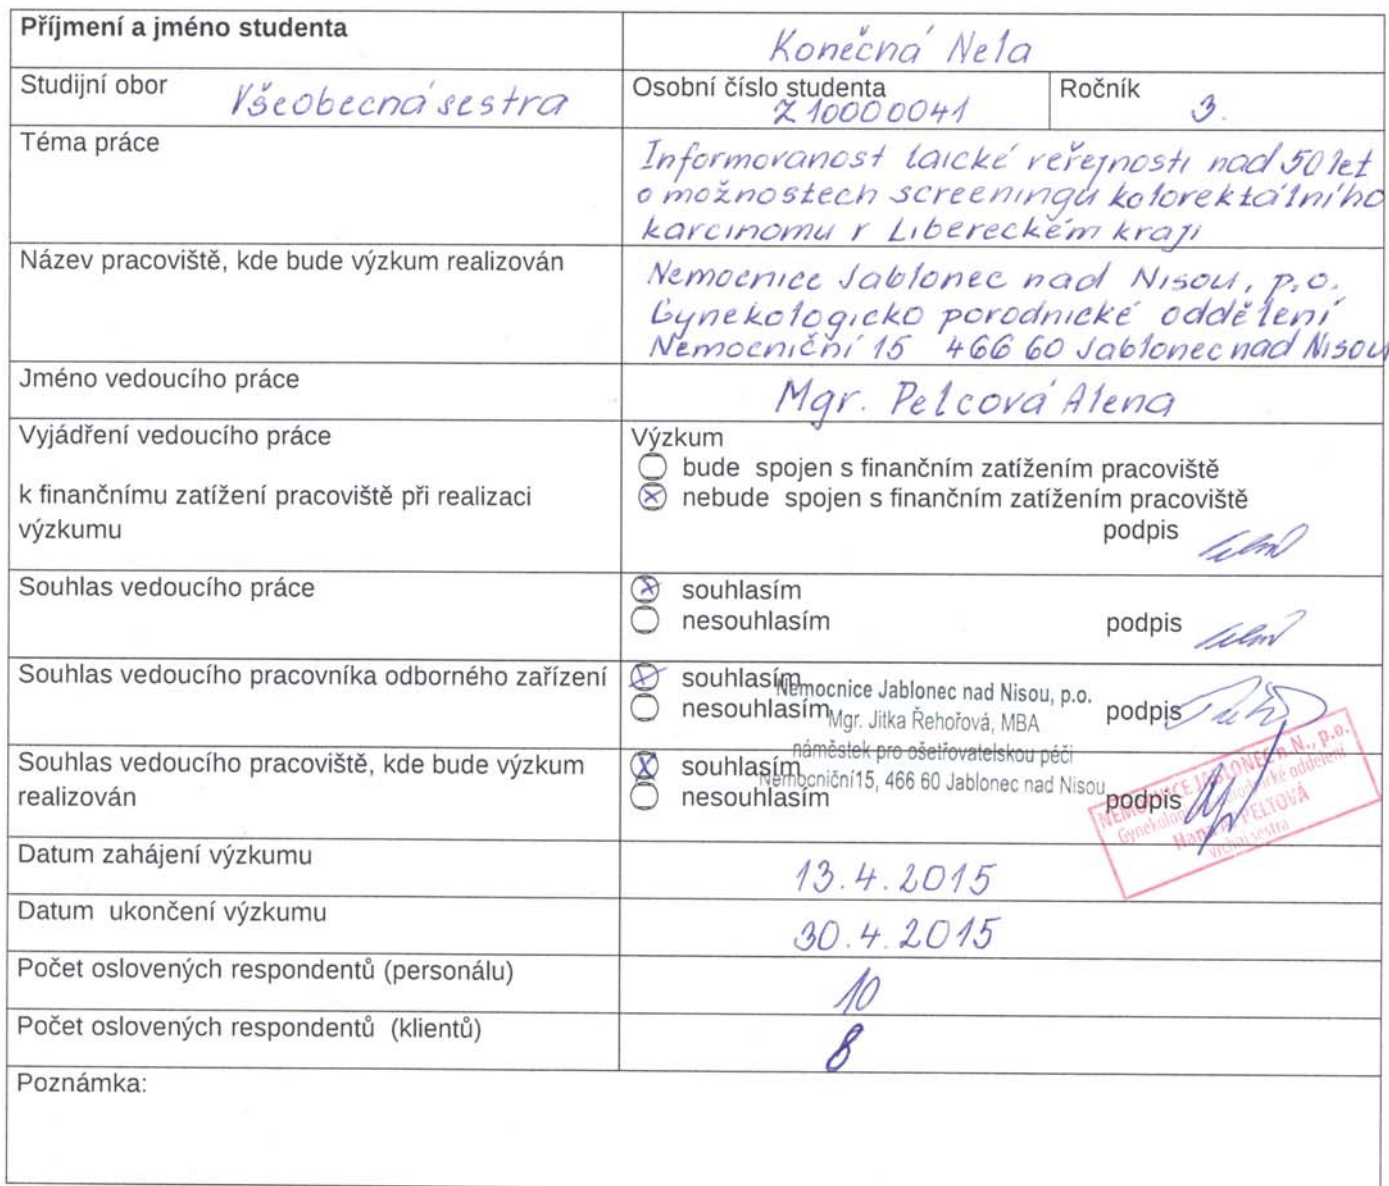 Příjmení a jméno studenta
Konečná Nela
Studijní obor
Všeobecná sestra
Osobní číslo studenta
Z10000041
Ročník
3.
Téma práce
Informovanost laické veřejnosti nad 50 let
o možnostech screeningu kolorektálního
karcinomu v Libereckém kraji
Název pracoviště, kde bude výzkum realizován
Nemocnice Jablonec nad Nisou, p.o.
Gynekologicko porodnické oddělení
Nemocniční 15 466 60 Jablonec nad Nisou
Jméno vedoucího práce
Mgr. Pelcová Alena
Vyjádření vedoucího práce
k finančnímu zatížení pracoviště při realizaci
výzkumu
Výzkum
bude spojen s finančním zatížením pracoviště
nebude spojen s finančním zatížením pracoviště
podpis
Souhlas vedoucího práce
souhlasím
nesouhlasím
podpis
Souhlas vedoucího pracovníka odborného zařízení
souhlasím
nesouhlasím
podpis
Nemocnice Jablonec nad Nisou, p.o.
Mgr. Jitka Řehořová, MBA
náměstek pro ošetřovatelskou péči
Nemocniční15, 466 60 Jablonec nad Nisou
Souhlas vedoucího pracoviště, kde bude výzkum
realizován
souhlasím
nesouhlasím
podpis
NEMOCNICE JABLONEC n.N., p.o.
oddělení
PELTOVÁ
vrchní sestra
Datum zahájení výzkumu
13.4.2015
Datum ukončení výzkumu
30.4.2015
Počet oslovených respondentů (personálu)
10
Počet oslovených respondentů (klientů)
8
Poznámka: